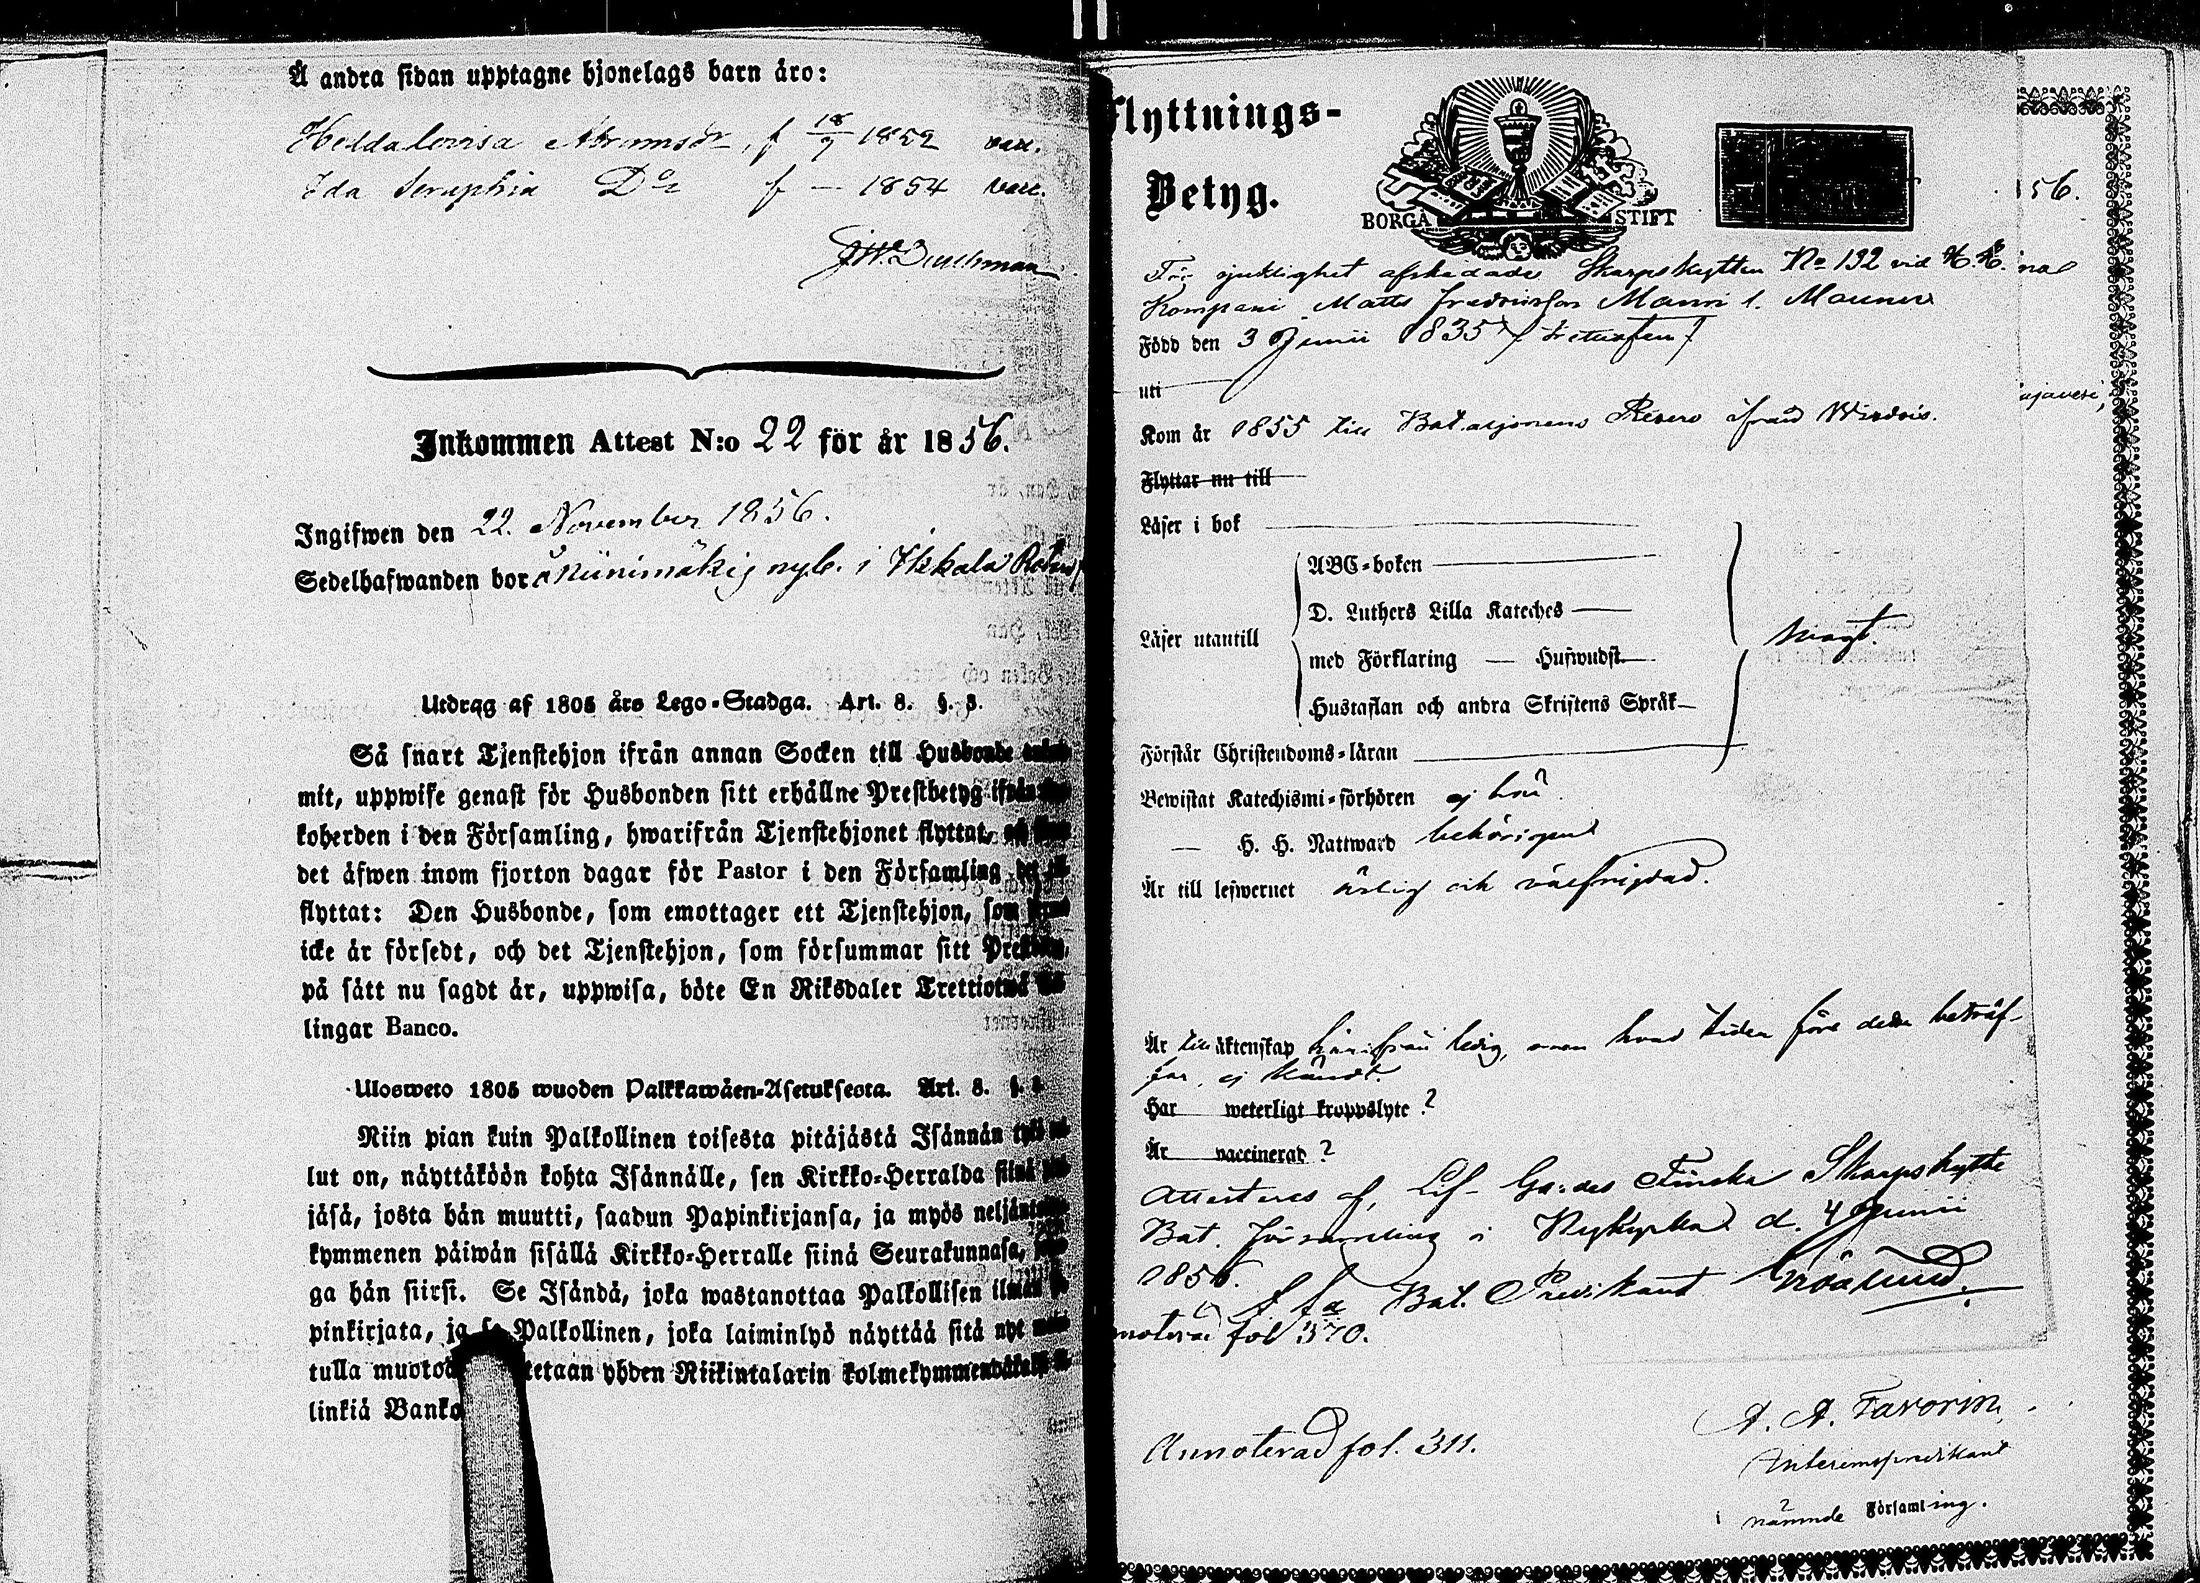 Å andra sidan upptagne hjonelags barn äro:
Hedda Lovisa Abramsdr, f 18/7 1852 vacc.
Ida Seraphia Do f — 1854 vacc.
Inkommen Attest N:o 22 för år 1856.
Ingifwen den 22. November 1856.
Sedelhafwanden bor å Niinimäki nyb. i Ikkala
Utdrag af 1805 års Lego-Stadga. Art. 8. §. 3.
Så snart Tjenstehjon ifrån annan Socken till Husbonde
mit, uppwise genast för Husbonden sitt erhållne Prestbetyg ifrån
koherden i den Församling, hwarifrån Tjenstehjonet flyttat,
det äfwen inom fjorton dagar för Pastor i den Församling
flyttat: Den Husbonde, som emottager ett Tjenstehjon, som
icke är försedt, och det Tjenstehjon, som försummar sitt
på sätt nu sagdt är, uppwisa, böte En Riksdaler Trettiotwå
lingar Banco.
Ulosweto 1805 wuoden Palkkawäen-Asetuksesta. Art. 8. §.
Niin pian kuin Palkollinen toisesta pitäjästä Isännän
lut on, näyttäköön kohta Isännälle, sen Kirkko-Herralda siinä
jäsä, josta hän muutti, saadun Papinkirjansa, ja myös
kymmenen päiwän sisällä Kirkko-Herralle siinä Seurakunnasa,
ga hän siirsi. Se Isändä, joka wastanottaa Palkollisen ilman
pinkirjata, ja se Palkollinen, joka laiminlyö näyttää sitä nyt
tulla muotoa tetaan yhden Riikintalarin
linkiä Banko
Flyttnings-
Betyg.
BORGÅ STIFT
56.
För sjuklighet afskedade Skarpskytten No 132 vid
Kompani Matts Fredriksson Manni l. Mauner
Född den 3 Junii 1835
uti
Kom år 1855 till Bataljonens Reserv ifrån
Flyttar nu till
Läser i bok
Läser utantill
ABC-boken
D. Luthers Lilla Kateches
med Förklaring — Hufwudst.
Hustaflan och andra Skriftens Språk
svagt.
Förstår Christendoms-läran
Bewistat Katechismi-förhören ej här.
— H. H. Nattward behörigen
Är till lefwernet ärlig och välfrejdad.
Är till äktenskap härifrån ledig, men hvad tiden före detta beträf-
far, ej kändt.
Har weterligt kroppslyte ?
Är vaccinerad ?
Attesteras af Lif-Gardes Finska Skarpskytte
Bat. Församling i Nykyrka d. 4 Junii
1856.
Bat. Predikant
fol 370.
Annoterad fol. 311.
A. A. Favorin,
Interimspredikant
i nämnde Församling.